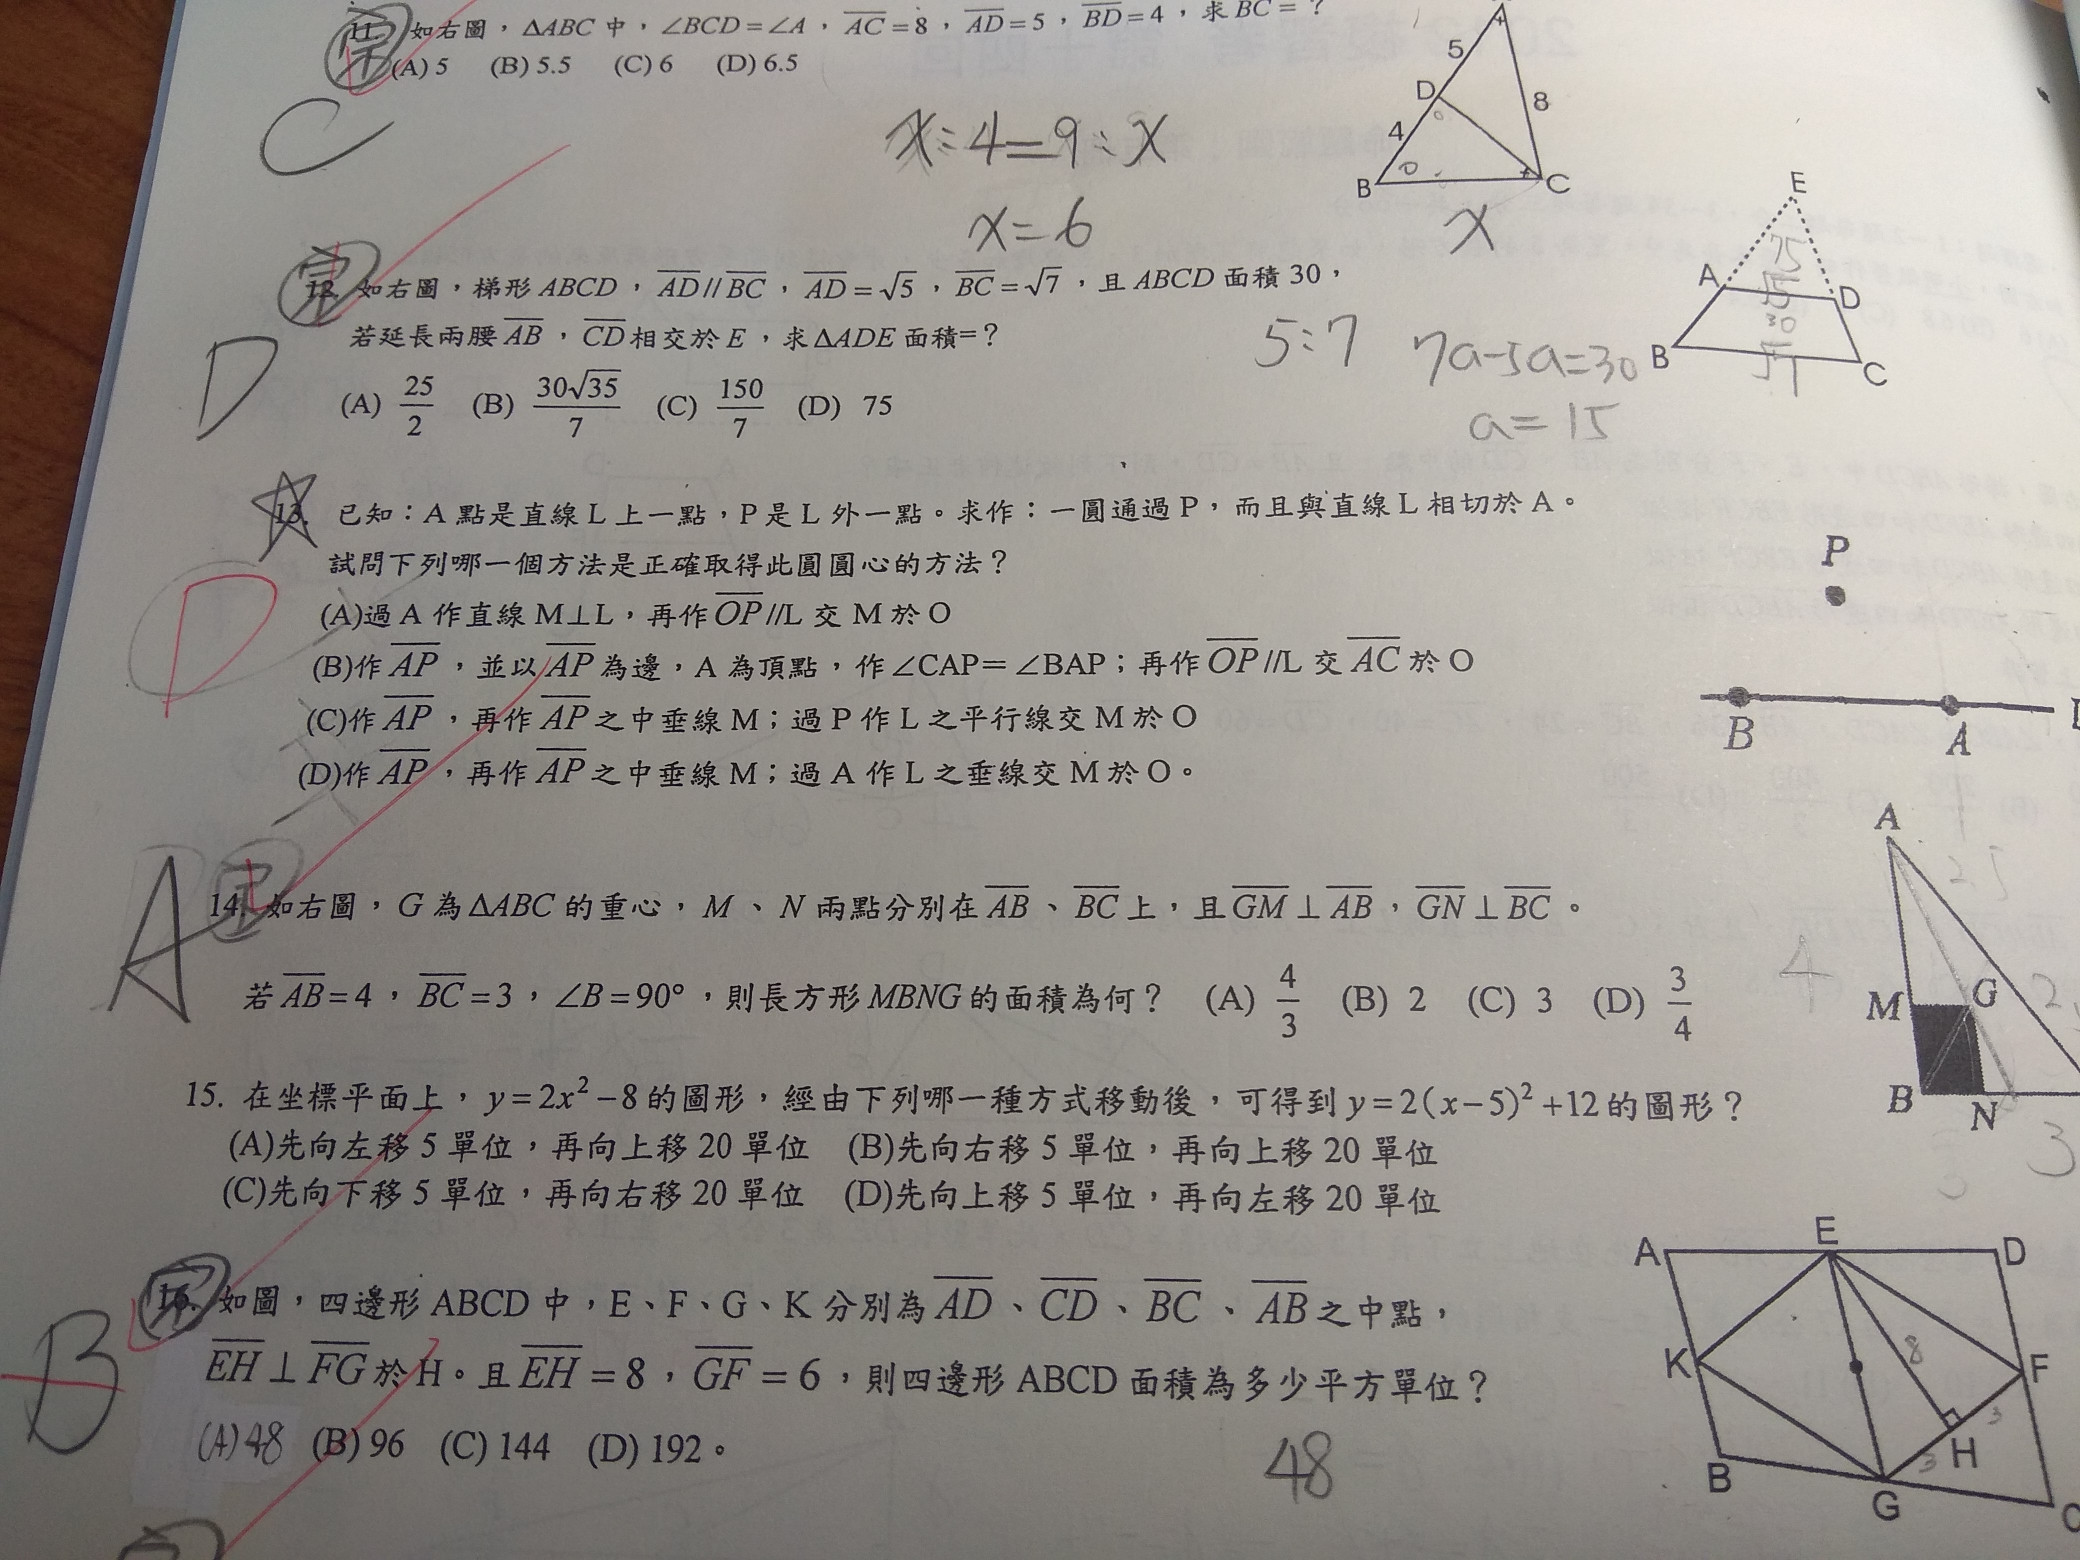 11. 如右圖，ΔABC 中，∠BCD=∠A，AC=8，AD=5，BD=4，求BC=？
(A) 5 (B) 5.5 (C) 6 (D) 6.5
C
x:4=9:x
x=6
5
D
8
4
B
C
x
12. 如右圖，梯形 ABCD，AD//BC，AD=√5，BC=√7，且 ABCD 面積 30，
若延長兩腰 AB，CD 相交於 E，求ΔADE 面積=？
(A) 25/2 (B) 30√35/7 (C) 150/7 (D) 75
D
5:7
7a-5a=30
a=15
E
75
A
√5
D
30
B
√7
C
13. 已知：A 點是直線 L 上一點，P 是 L 外一點。求作：一圓通過 P，而且與直線 L 相切於 A。
試問下列哪一個方法是正確取得此圓圓心的方法？
(A)過 A 作直線 M⊥L，再作 OP//L 交 M 於 O
(B)作 AP，並以 AP 為邊，A 為頂點，作∠CAP=∠BAP；再作 OP//L 交 AC 於 O
(C)作 AP，再作 AP 之中垂線 M；過 P 作 L 之平行線交 M 於 O
(D)作 AP，再作 AP 之中垂線 M；過 A 作 L 之垂線交 M 於 O。
D
P
B
A
A
14. 如右圖，G 為ΔABC 的重心，M、N 兩點分別在 AB、BC 上，且 GM⊥AB，GN⊥BC。
若 AB=4，BC=3，∠B=90°，則長方形 MBNG 的面積為何？ (A) 4/3 (B) 2 (C) 3 (D) 3/4
A
4
M
G
B
N
3
15. 在坐標平面上，y=2x²-8 的圖形，經由下列哪一種方式移動後，可得到 y=2(x-5)²+12 的圖形？
(A)先向左移 5 單位，再向上移 20 單位 (B)先向右移 5 單位，再向上移 20 單位
(C)先向下移 5 單位，再向右移 20 單位 (D)先向上移 5 單位，再向左移 20 單位
16. 如圖，四邊形 ABCD 中，E、F、G、K 分別為 AD、CD、BC、AB 之中點，
EH⊥FG 於 H。且 EH=8，GF=6，則四邊形 ABCD 面積為多少平方單位？
(A)48 (B) 96 (C) 144 (D) 192。
B
48
A
E
D
K
8
F
3
H
3
B
G